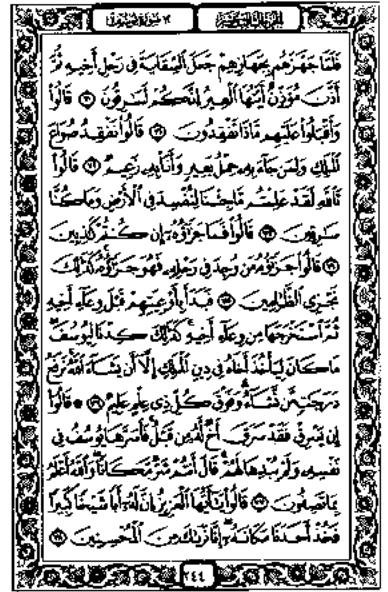 فَلَمَّا جَهَّزَهُم بِجَهَازِهِمْ جَعَلَ السِّقَايَةَ فِي رَحْلِ أَخِيهِ ثُمَّ
أَذَّنَ مُؤَذِّنٌ أَيَّتُهَا الْعِيرُ إِنَّكُمْ لَسَارِقُونَ ٧٠ قَالُوا
وَأَقْبَلُوا عَلَيْهِم مَّاذَا تَفْقِدُونَ ٧١ قَالُوا نَفْقِدُ صُوَاعَ
الْمَلِكِ وَلِمَن جَاءَ بِهِ حِمْلُ بَعِيرٍ وَأَنَا بِهِ زَعِيمٌ ٧٢ قَالُوا
تَاللَّهِ لَقَدْ عَلِمْتُم مَّا جِئْنَا لِنُفْسِدَ فِي الْأَرْضِ وَمَا كُنَّا
سَارِقِينَ ٧٣ قَالُوا فَمَا جَزَاؤُهُ إِن كُنتُمْ كَاذِبِينَ
٧٤ قَالُوا جَزَاؤُهُ مَن وُجِدَ فِي رَحْلِهِ فَهُوَ جَزَاؤُهُ كَذَلِكَ
نَجْزِي الظَّالِمِينَ ٧٥ فَبَدَأَ بِأَوْعِيَتِهِمْ قَبْلَ وِعَاءِ أَخِيهِ
ثُمَّ اسْتَخْرَجَهَا مِن وِعَاءِ أَخِيهِ كَذَلِكَ كِدْنَا لِيُوسُفَ
مَا كَانَ لِيَأْخُذَ أَخَاهُ فِي دِينِ الْمَلِكِ إِلَّا أَن يَشَاءَ اللَّهُ نَرْفَعُ
دَرَجَاتٍ مَّن نَّشَاءُ وَفَوْقَ كُلِّ ذِي عِلْمٍ عَلِيمٌ ٧٦ قَالُوا
إِن يَسْرِقْ فَقَدْ سَرَقَ أَخٌ لَّهُ مِن قَبْلُ فَأَسَرَّهَا يُوسُفُ فِي
نَفْسِهِ وَلَمْ يُبْدِهَا لَهُمْ قَالَ أَنتُمْ شَرٌّ مَّكَانًا وَاللَّهُ أَعْلَمُ
بِمَا تَصِفُونَ ٧٧ قَالُوا يَا أَيُّهَا الْعَزِيزُ إِنَّ لَهُ أَبًا شَيْخًا كَبِيرًا
فَخُذْ أَحَدَنَا مَكَانَهُ إِنَّا نَرَاكَ مِنَ الْمُحْسِنِينَ ٧٨
٢٤٤